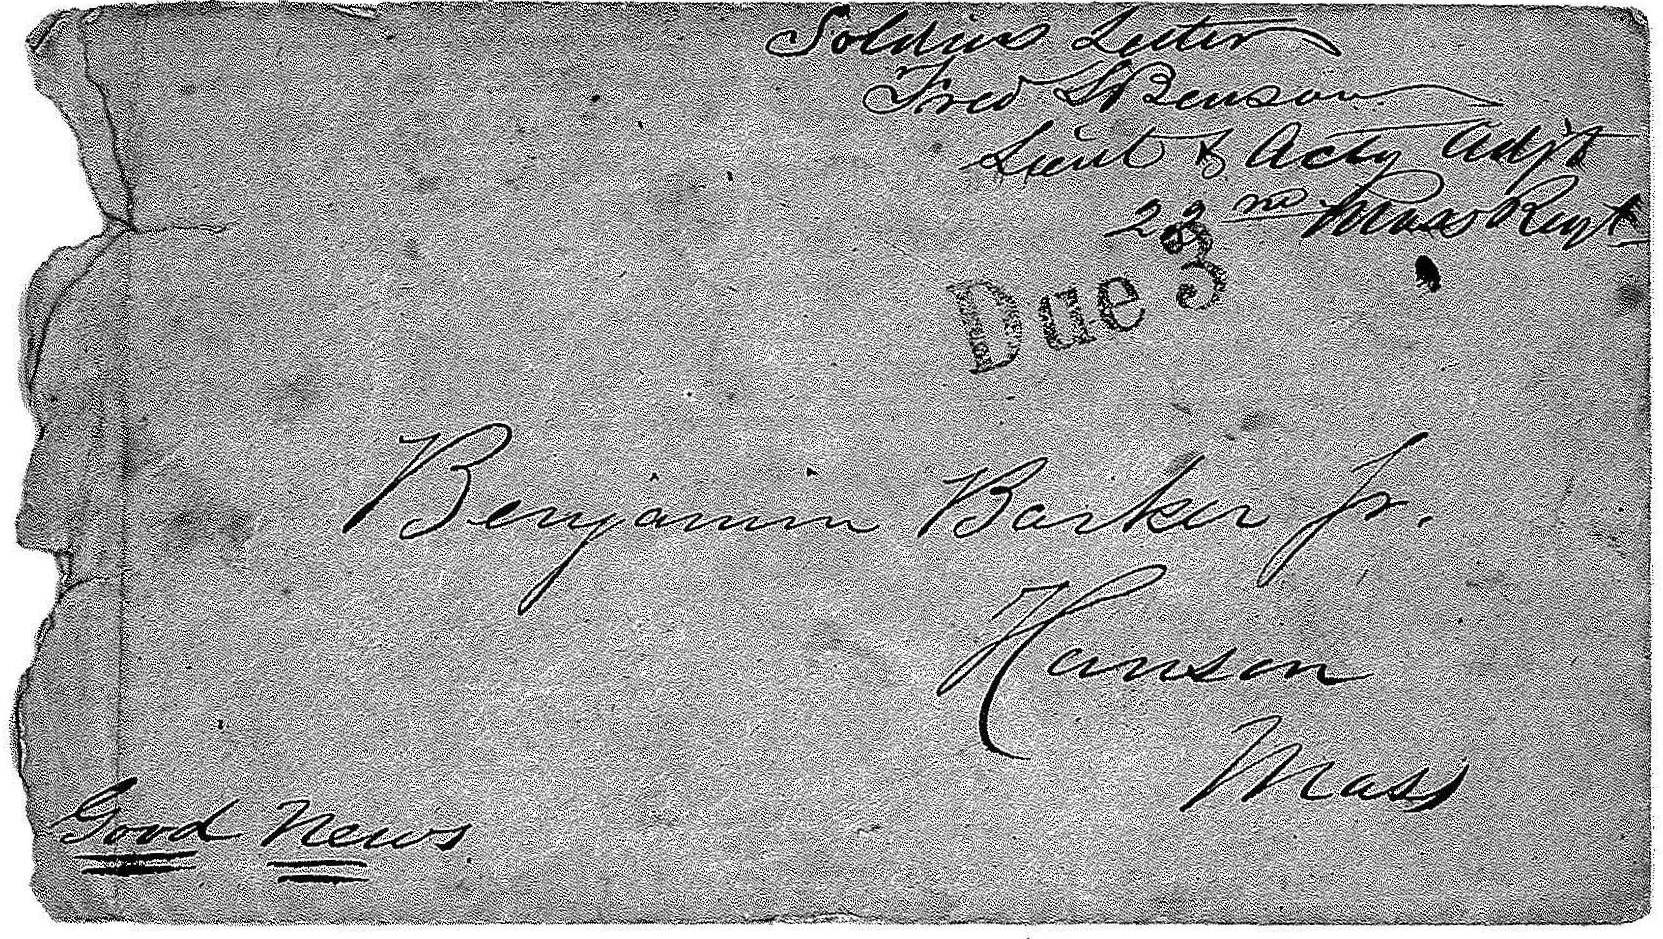 Soldiers Letter
Fred S Benson
Lieut & Actg Adjt
23 nd Mass Regt
Due 3
Benjamin Barker Jr.
Hanson
Mass
Good News